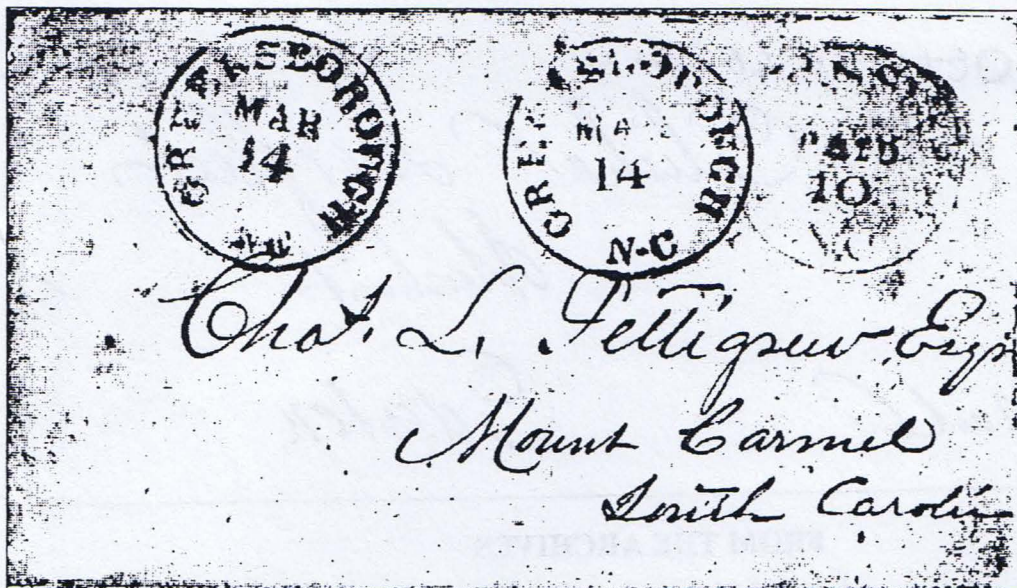 GREENSBOROUGH
MAR
14
N.C
GREENSBOROUGH
MAR
14
N-C
PAID
10
N.C
Chas. L. Pettigrew Esqr
Mount Carmel
South Carolin
FROM THE ARCHIVES